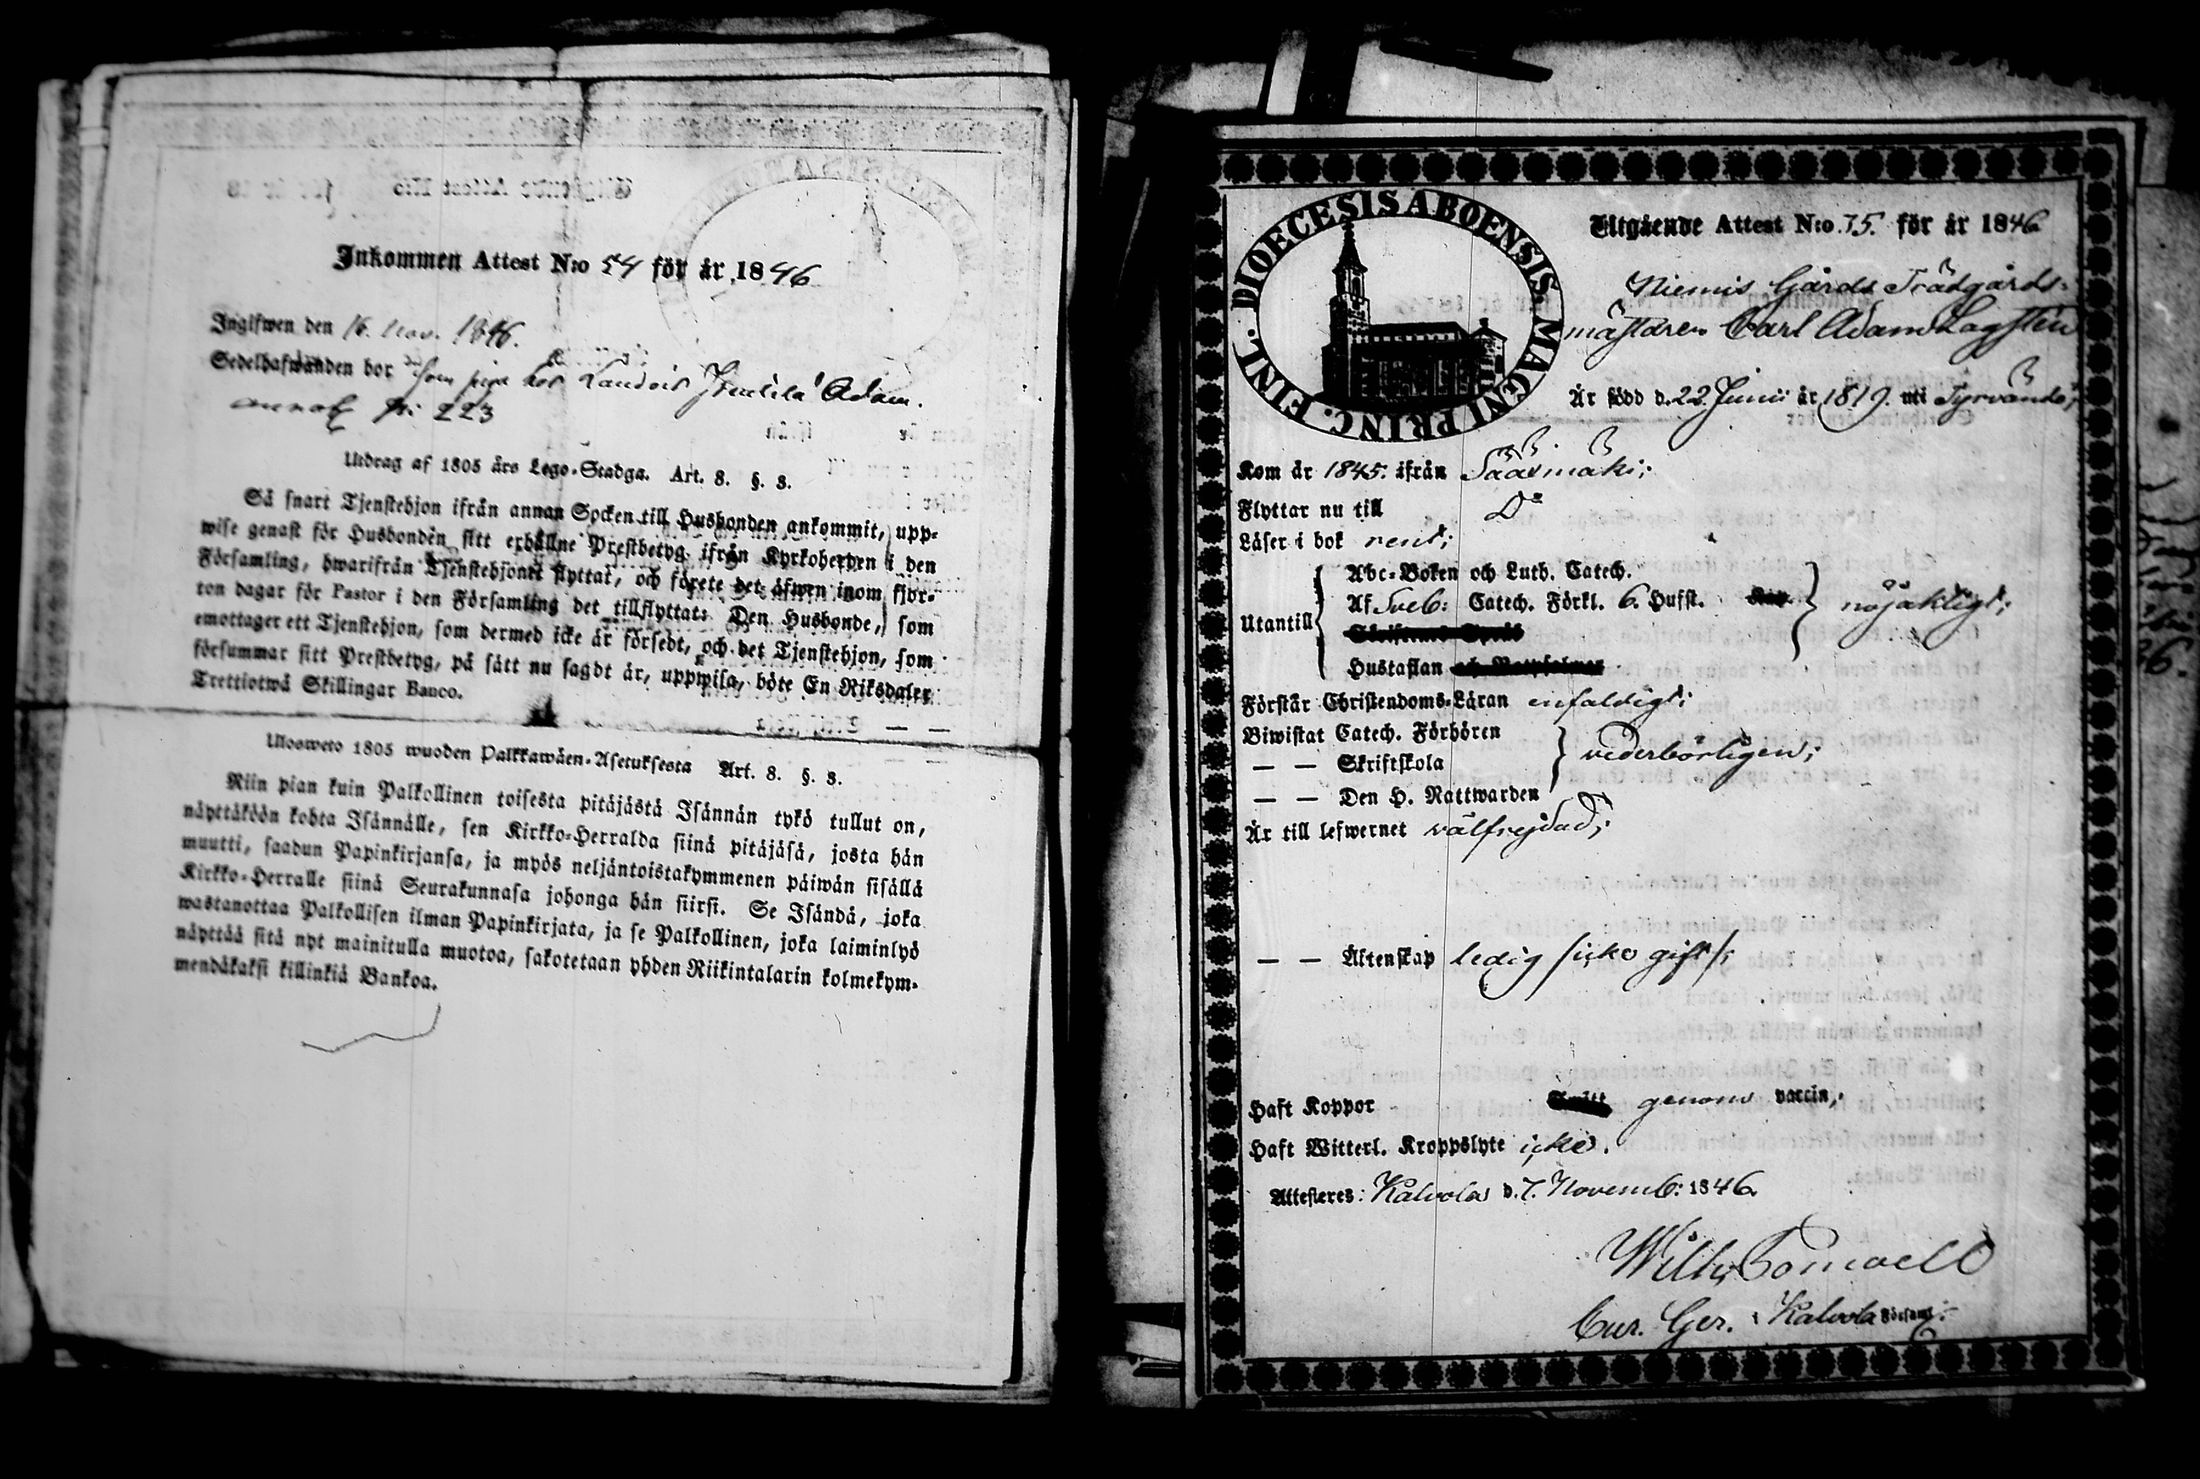 Inkommen Attest N:o 54 för år 1846
Ingifwen den 16. Nov. 1846.
Sedelhafwanden bor som piga hos Landbon Adam.
Utdrag af 1805 års Lego-Stadga. Art. 8. §. 8.
Så snart Tjenstehjon ifrån annan Socken till Husbonden ankommit, upp-
wise genast för Husbonden sitt erhållne Prestbetyg ifrån Kyrkoherden i den
Församling, hwarifrån Tjenstehjonet flyttat, och förete det äfwen inom fjor-
ton dagar för Pastor i den Församling det tillflyttat: Den Husbonde, som
emottager ett Tjenstehjon, som dermed icke är försedt, och det Tjenstehjon, som
försummar sitt Prestbetyg, på sätt nu sagdt är, uppwisa, böte En Riksdaler
Trettiotwå Skillingar Banco.
Ulosweto 1805 wuoden Palkkawäen-Asetuksesta Art. 8. §. 8.
Niin pian kuin Palkollinen toisesta pitäjästä Isännän tykö tullut on,
näyttäköön kohta Isännälle, sen Kirkko-Herralda siinä pitäjäsä, josta hän
muutti, saadun Papinkirjansa, ja myös neljäntoistakymmenen päiwän sisällä
Kirkko-Herralle siinä Seurakunnasa johonga hän siirsi. Se Isändä, joka
wastanottaa Palkollisen ilman Papinkirjata, ja se Palkollinen, joka laiminlyö
näyttää sitä nyt mainitulla muotoa, sakotetaan yhden Riikintalarin kolmekym-
mendäkaksi killinkiä Bankoa.
DIOECESIS ABOENSIS. MAGNI PRINC. FINL.
Utgående Attest N:o 75. för år 1846
Niemis Gårds Trädgårds-
mästaren Carl Adam Lagsten
Är född d. 22 Junii år 1819. uti Tyrvändö;
Kom år 1845. ifrån Sääxmäki;
Flyttar nu till D:o
Läser i bok rent;
Utantill
Abc-Boken och Luth. Catech.
Af Sveb: Catech. Förkl. 6. Hufst.
Hustaflan
nöjaktigt;
Förstår Christendoms-Läran enfaldigt;
Biwistat Catech. Förhören
— — Skriftskola
— — Den H. Nattwarden
vederbörligen;
Är till lefwernet välfrejdad;
— — Äktenskap ledig /icke gift/;
Haft Koppor genom vaccin;
Haft Witterl. Kroppslyte icke.
Attesteres: Kalvola d. 7. Novemb: 1846.
Cur. Ger. i Kalvola Församl: